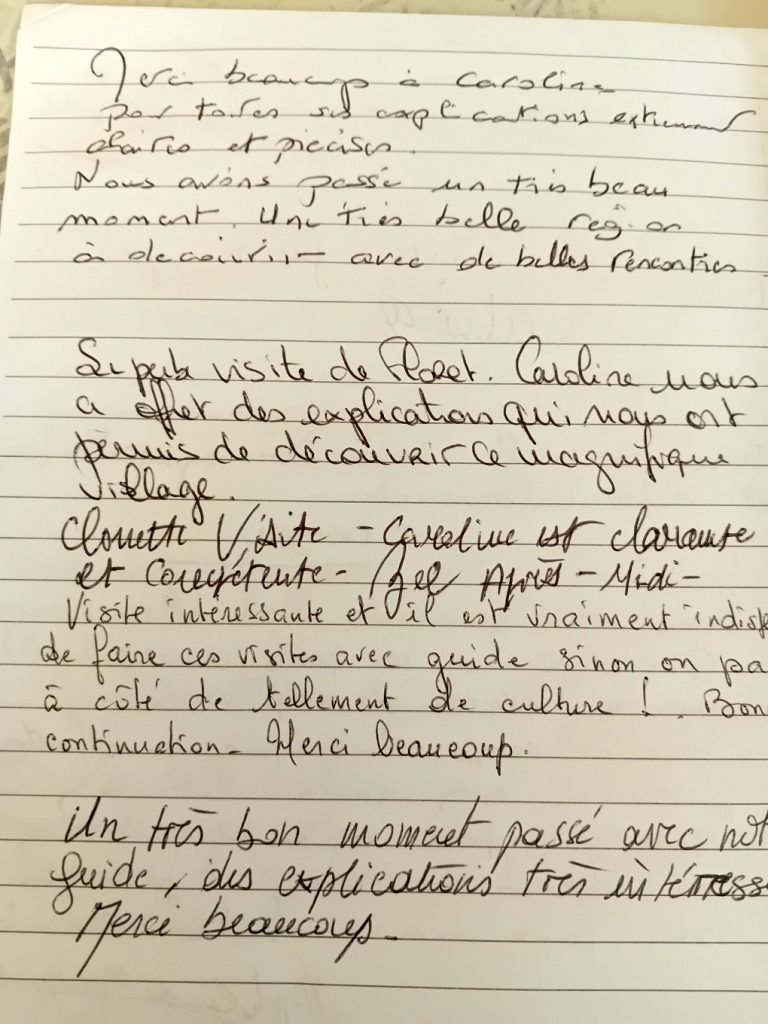 Merci beaucoup à Caroline
pour toutes ses explications extrêmement
claires et précises.
Nous avons passé un très beau
moment. Une très belle région
à découvrir - avec de belles rencontres
Superbe visite de Floret. Caroline nous
a offert des explications qui nous ont
permis de découvrir ce magnifique
village.
Chouette Visite - Caroline est
et Compétente - Bel Après-Midi -
Visite intéressante et il est vraiment indisp
de faire ces visites avec guide sinon on pa
à côté de tellement de culture ! Bon
continuation - Merci beaucoup.
Un très bon moment passé avec not
guide, des explications très intéress
Merci beaucoup -